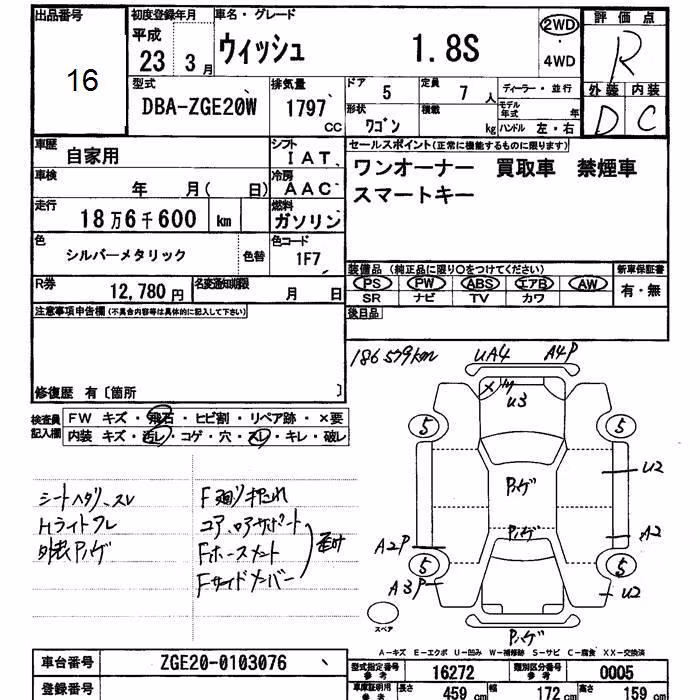 出品番号
16
初度登録年月
平成
23 3月
車名・グレード
ウィッシュ 1.8S
2WD
・
4WD
評価点
R
外装 内装
D C
型式
DBA-ZGE20W
排気量
1797
CC
ドア
5
定員
7 人
形状
ワゴン
積載
kg
ディーラー・並行
モデル年式 年
ハンドル 左・右
車歴
自家用
シフト
IAT
車検
年 月( 日)
冷房
AAC
走行
18万6千600 km
燃料
ガソリン
色
シルバーメタリック
色替
色コード
1F7
R券
12,780 円
名変通知期限
月 日
セールスポイント(正常に機能するものに限ります)
ワンオーナー 買取車 禁煙車
スマートキー
装備品 (純正品に限り○をつけてください)
新車保証書
PS PW ABS エアB AW
有・無
SR ナビ TV カワ
後日品
注意事項申告欄(不具合内容等は具体的に記入して下さい)
修復歴 有〔箇所 〕
検査員
記入欄
FW キズ・飛石・ヒビ割・リペア跡・×要
内装 キズ・汚レ・コゲ・穴・スレ・キレ・破レ
シートハタリ、スレ
Hライトフレ
外装Pハゲ
コア、ロアサポート
Fホースメント
Fサイドメンバー
186539km
UA4 A4P
U3
5 5
Pハゲ
U2
Pハゲ
A2P
A2
5 5
A3P
U2
Pハゲ
スペア
A-キズ E-エクボ U-凹み W-補修跡 S-サビ C-腐食 XX-交換済
車台番号
ZGE20-0103076
登録番号
型式指定番号
参考
16272
類別区分番号
参考
0005
車庫証明用
参考
長さ 459 cm
幅 172 cm
高さ 159 cm